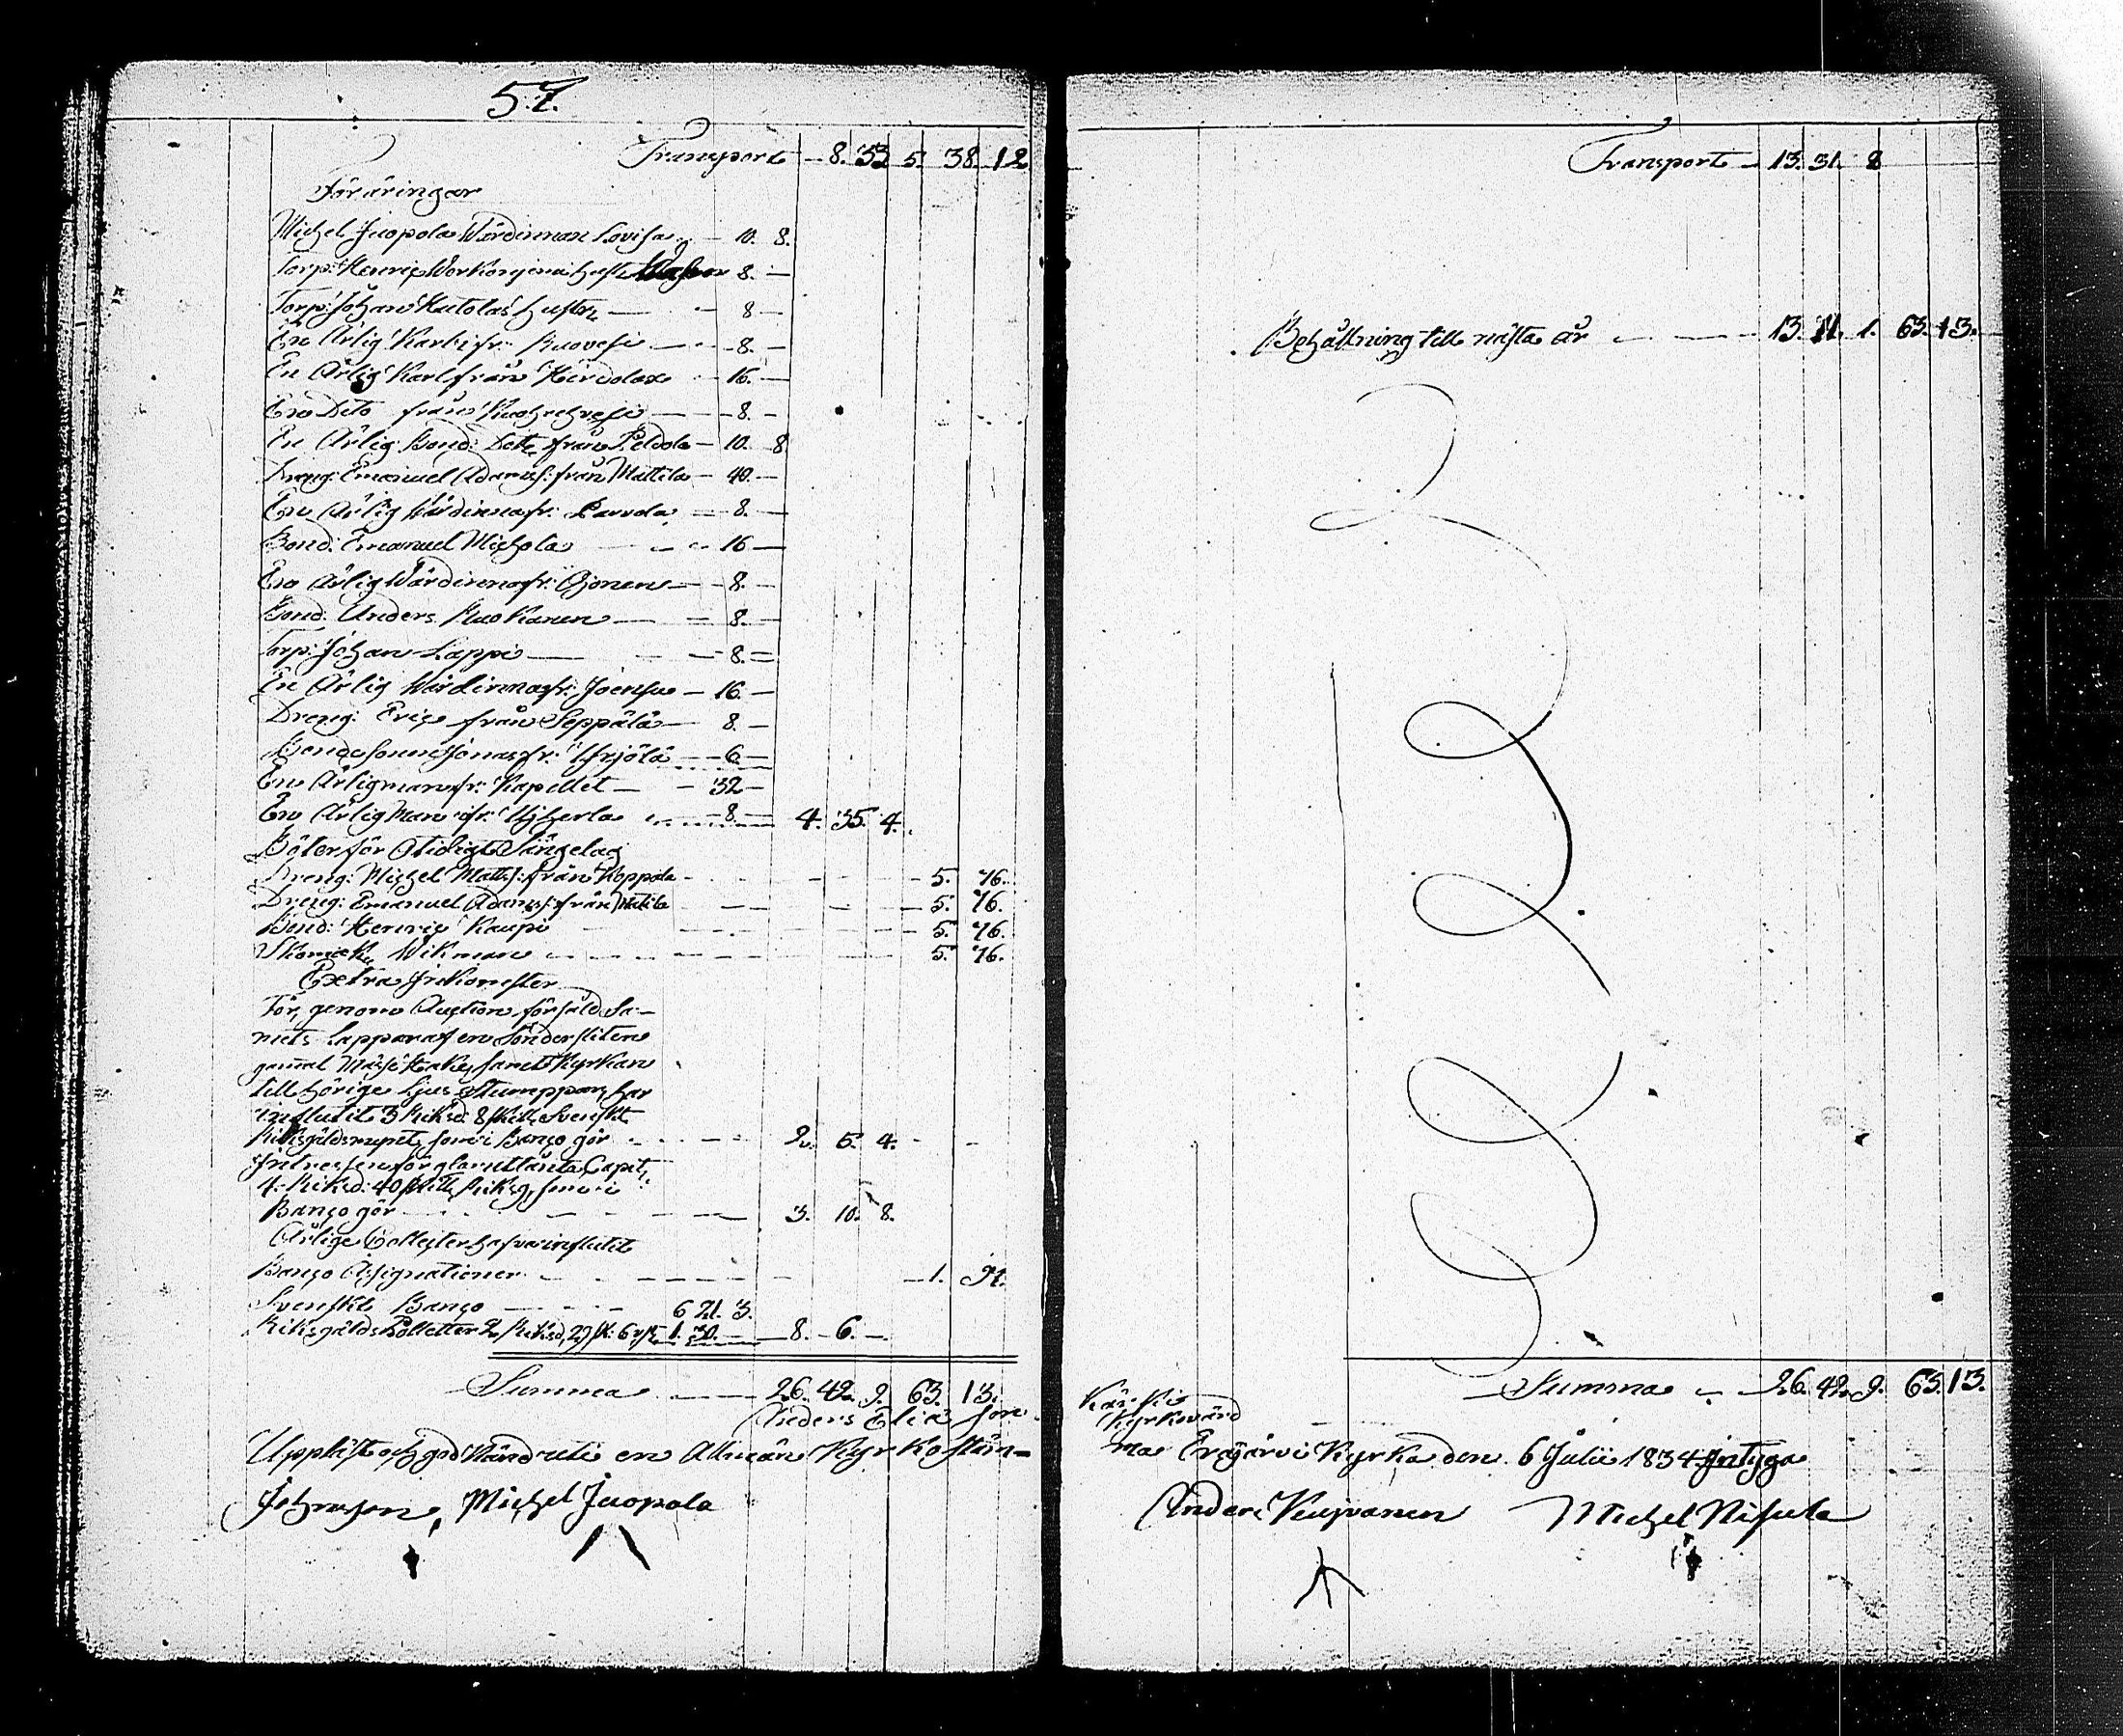 57.
Transport 8. 33 5. 38. 12
Föräringar
Michel Juopola Wärdinnan Lovisa 10. 8.
Torp: Henric Workonjemi hust 8. —
Torp: Johan Hutolas hustru 8 —
En Ärlig Karl fr: Ruovesi 8. —
En Ärlig Karl från Härdola 16. —
En Dito från 8. —
En Ärlig Bond: Dott från Peldola 10. 8
Dreng: Emanuel Adamss: från Mattila 40. —
En Ärlig Wärdinna fr: Parrola 8. —
Bond: Emanuel Michola 16 —
En Ärlig Wärdinna fr: Ojonen 8. —
Bond: Anders Ruokanen 8. —
Torp: Johan Lappi 8. =
En Ärlig Wärdinna fr: Joensu 16. —
Dreng: Eric från Seppälä 8. —
Bondesonen Jonas fr: Yrjölä 6 —
En Ärlig man fr: Kapellet 32 —
En Ärlig Man fr: Uhherla 8. — 4. 35. 4.
Böter för Otidigt Sängelag
Dreng: Michel Matts: från Koppola 5. 76.
Dreng: Emanuel Adamss: från Matila 5. 76.
Bond: Henric Kaupi 5. 76.
Skomak: Wikman 5. 76.
Extra Inkomster
För, genom Auction försäld Sa-
mets Lappar af en Söndersliten
gamal Mässe Hake, samt Kyrkan
tillhörige Ljus Stumppar, har
influtit 3 Riksd: 8 skill. Svenskt
Riksgäldsmynt, som i Banco gör 2. 5. 4.
Intressen för utlänta Capit:
4. Riksd: 40 skill: Riksg, som i
Banco gör 3. 10. 8.
Årlige Collecter hafva influtit
Banco Assignationer 1. 91.
Svenskt Banco 6 21. 3.
Riksgälds Polletter 2 Riksd, 27 sk: 6 rst 1. 30. — 8. 6. —
Summa 26. 42. 9. 63. 13.
Anders Elia son
Uppläst och god känd uti en Allmän Kyrkostäm-
Johnsson, Michel Juopola
Transport 13. 31. 8
Behållning till nästa år 13. 11. 1. 63. 13.
Summa 26. 42. 9. 63. 13.
Kyrkovärd
ma Eräjärvi Kyrka den 6 Julii 1834. Intyga
Anders Michel Nisula